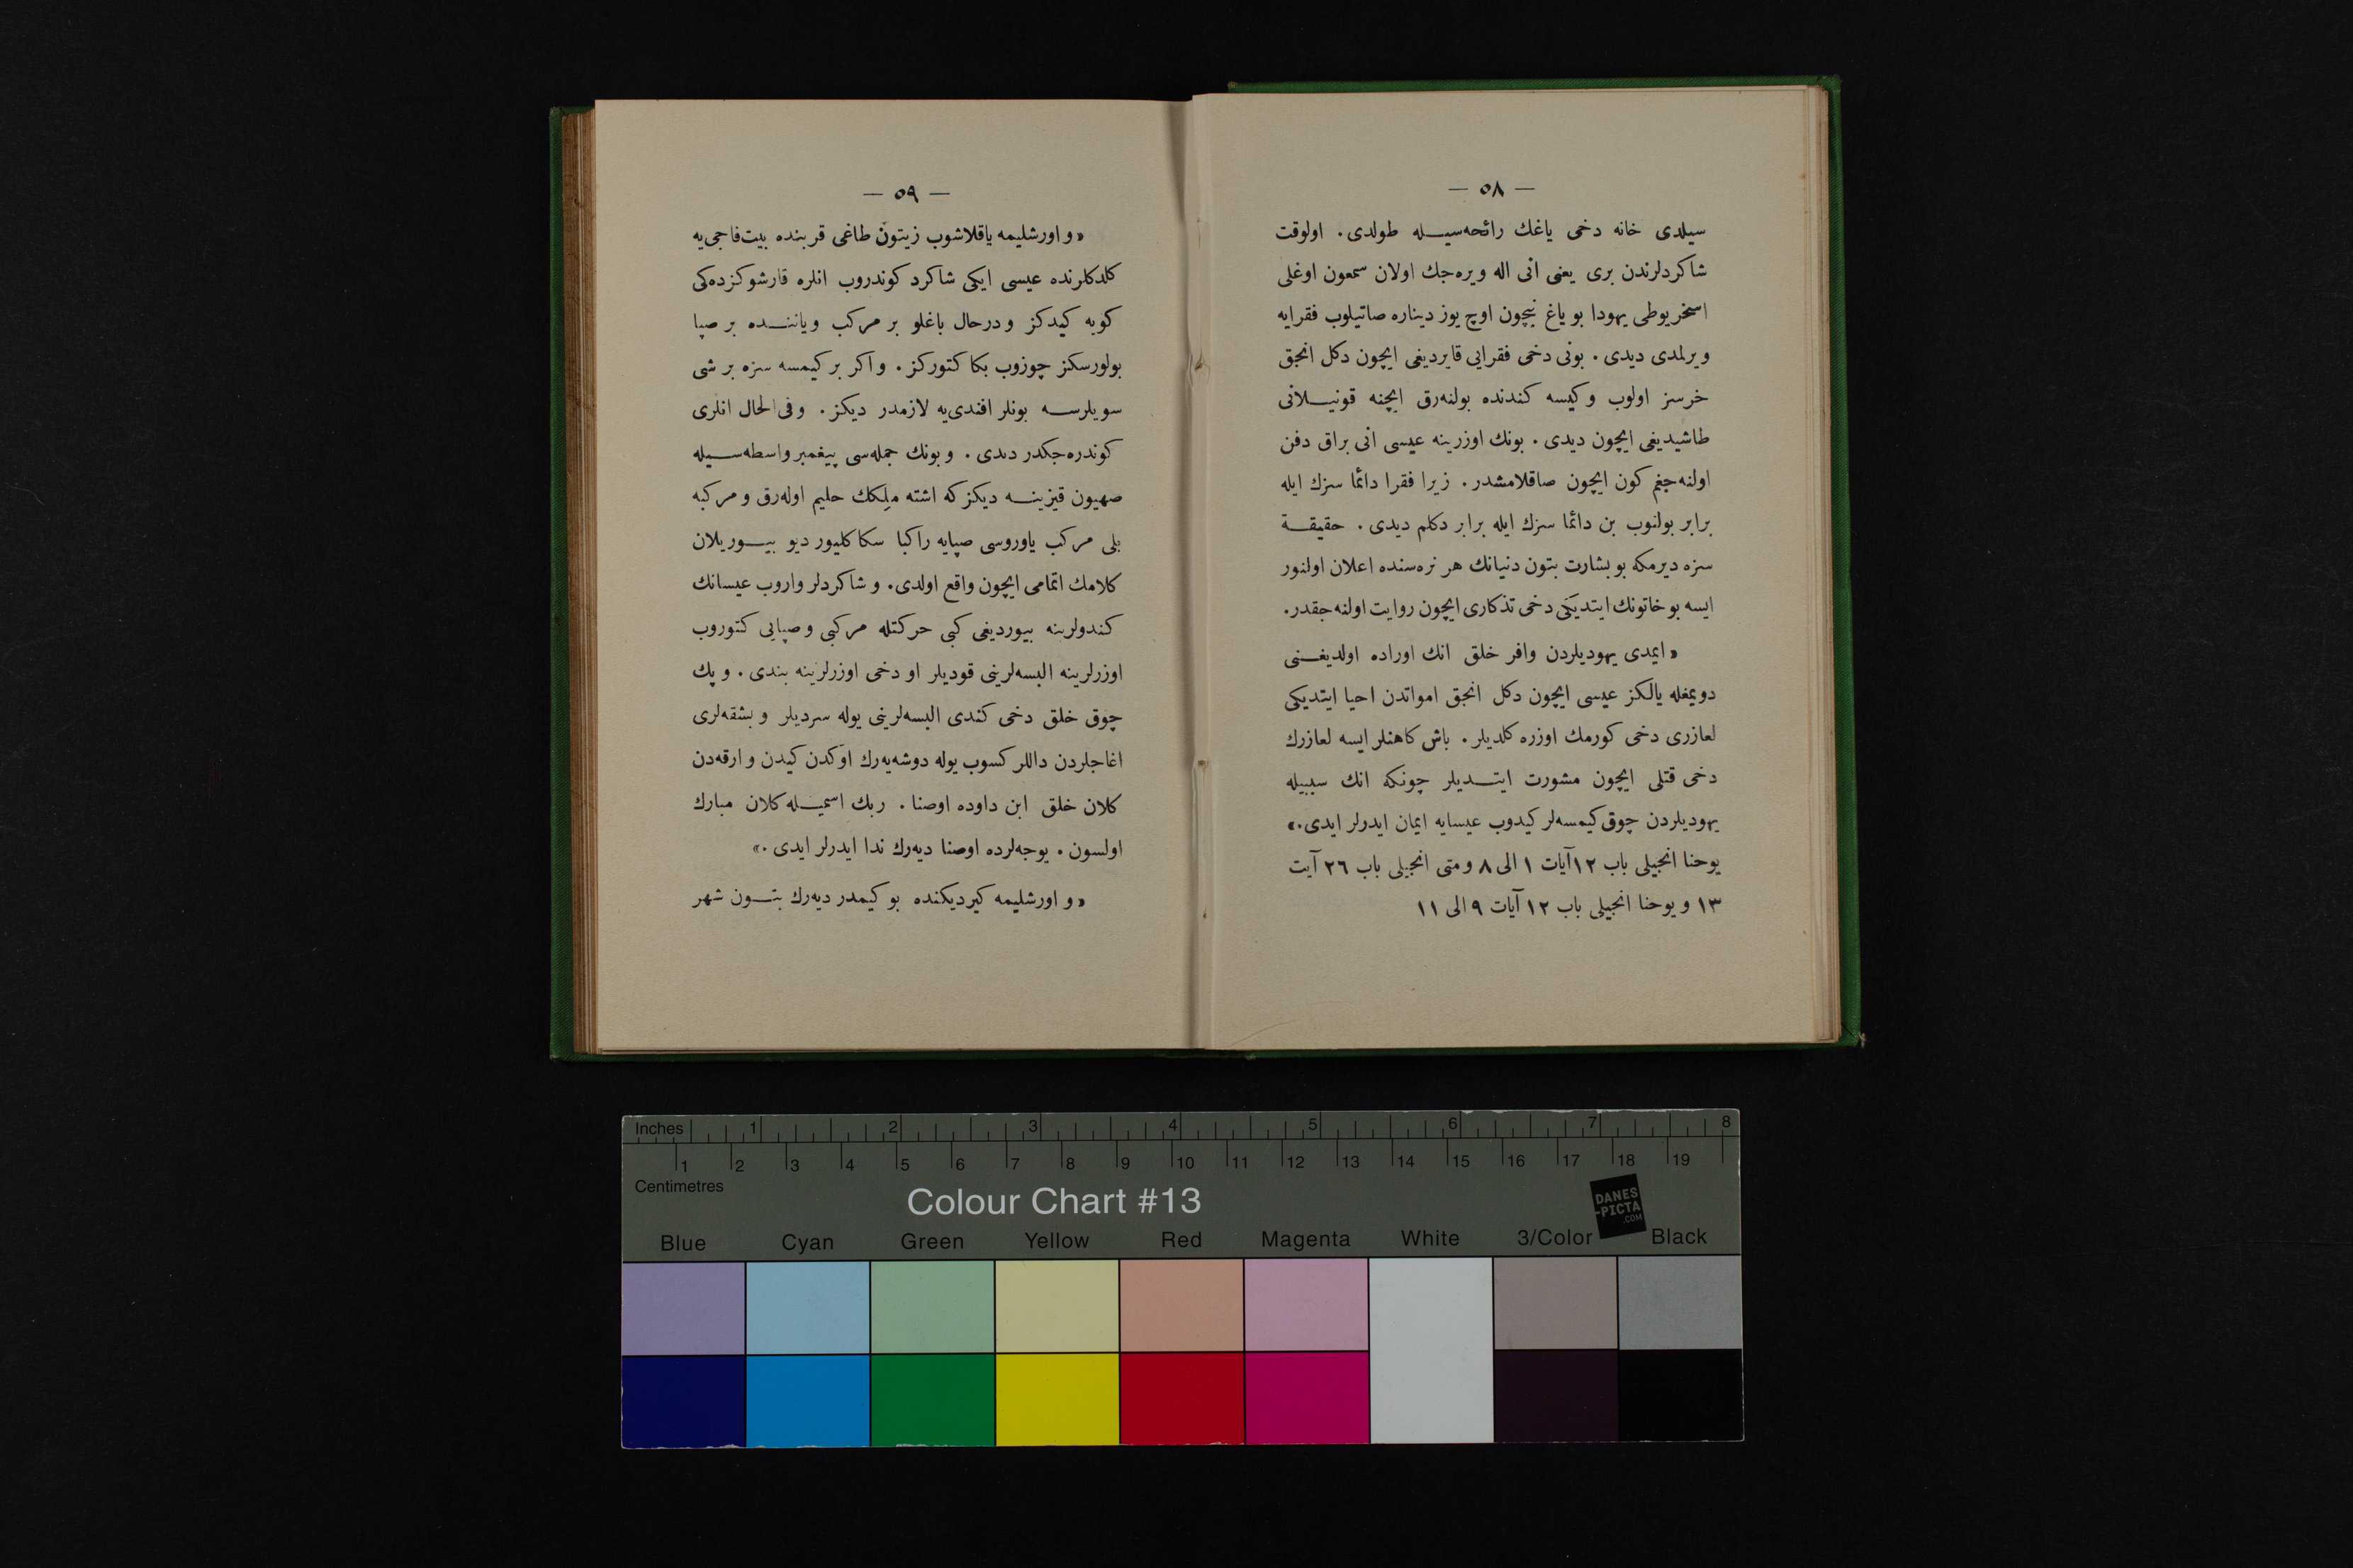 — ٥٨ —
سيلدى خانه دخى ياغك رائحه‌سيـله طولدى. اولوقت
شاكردلرندن برى يعنى انى اله ويره‌جك اولان سمعون اوغلى
اسخريوطى يهودا بو ياغ نيچون اوچ يوز ديناره صاتيلوب فقرايه
ويرلمدى ديدى. بونى دخى فقرايى قايرديغى ايچون دكل انجق
خرسز اولوب وكيسه كندنده بولنه‌رق ايچنه قونيـلانى
طاشيديغى ايچون ديدى. بونك اوزرينه عيسى انى براق دفن
اولنه‌جغم كون ايچون صاقلامشدر. زيرا فقرا دائما سزك ايله
برابر بولنوب بن دائما سزك ايله برابر دكلم ديدى. حقيقـة
سزه ديرمكه بو بشارت بتون دنيانك هر نره‌سنده اعلان اولنور
ايسه بو خاتونك ايتديكى دخى تذكارى ايچون روايت اولنه‌جقدر.
« ايمدى يهوديلردن وافر خلق انك اوراده اولديغـنى
دويمغله يالكز عيسى ايچون دكل انجق امواتدن احيا ايتديكى
لعازرى دخى كورمك اوزره كلديلر. باش كاهنلر ايسه لعازرك
دخى قتلى ايچون مشورت ايتـديلر چونكه انك سببيله
يهوديلردن چوق كيمسه‌لر كيدوب عيسايه ايمان ايدرلر ايدى.»
يوحنا انجيلى باب ١٢ آيات ١ الى ٨ و متى انجيلى باب ٢٦ آيت
١٣ و يوحنا انجيلى باب ١٢ آيات ٩ الى ١١
— ٥٩ —
« و اورشليمه ياقلاشوب زيتون طاغى قربنده بيت‌فاجى‌يه
كلدكلرنده عيسى ايكى شاكرد كوندروب انلره قارشوكزده‌كى
كويه كيدكز و درحال باغلو بر مركب و ياننـده بر صپا
بولورسكز چوزوب بكا كتوركز. و اكر بر كيمسه سزه بر شى
سويلرسـه بونلر افندى‌يه لازمدر ديكز. و فى‌الحال انلرى
كوندره‌جكدر ديدى. و بونك جمله‌سى پيغمبر واسطه‌سـيله
صهيون قيزينـه ديكز كه اشته مَلِكك حليم اوله‌رق و مركبه
بلى مركب ياوروسى صپايه راكبا سكا كليور ديو بيـوريلان
كلامك اتمامى ايچون واقع اولدى. و شاكردلر واروب عيسانك
كندولرينه بيورديغى كبى حركتله مركبى و صپايى كتوروب
اوزرلرينه البسه‌لرينى قوديلر او دخى اوزرلرينه بندى. و پك
چوق خلق دخى كندى البسه‌لرينى يوله سرديلر و بشقه‌لرى
اغاجلردن داللر كسوب يوله دوشه‌يه‌رك اوكدن كيدن و ارقه‌دن
كلان خلق ابن داوده اوصنا. ربك اسميـله كلان مبارك
اولسون. يوجه‌لرده اوصنا ديه‌رك ندا ايدرلر ايدى.»
« و اورشليمه كيرديكنده بو كيمدر ديه‌رك بتـون شهر
Inches 1 2 3 4 5 6 7 8
1 2 3 4 5 6 7 8 9 10 11 12 13 14 15 16 17 18 19
Centimetres
Colour Chart #13
DANES
-PICTA
.COM
Blue Cyan Green Yellow Red Magenta White 3/Color Black